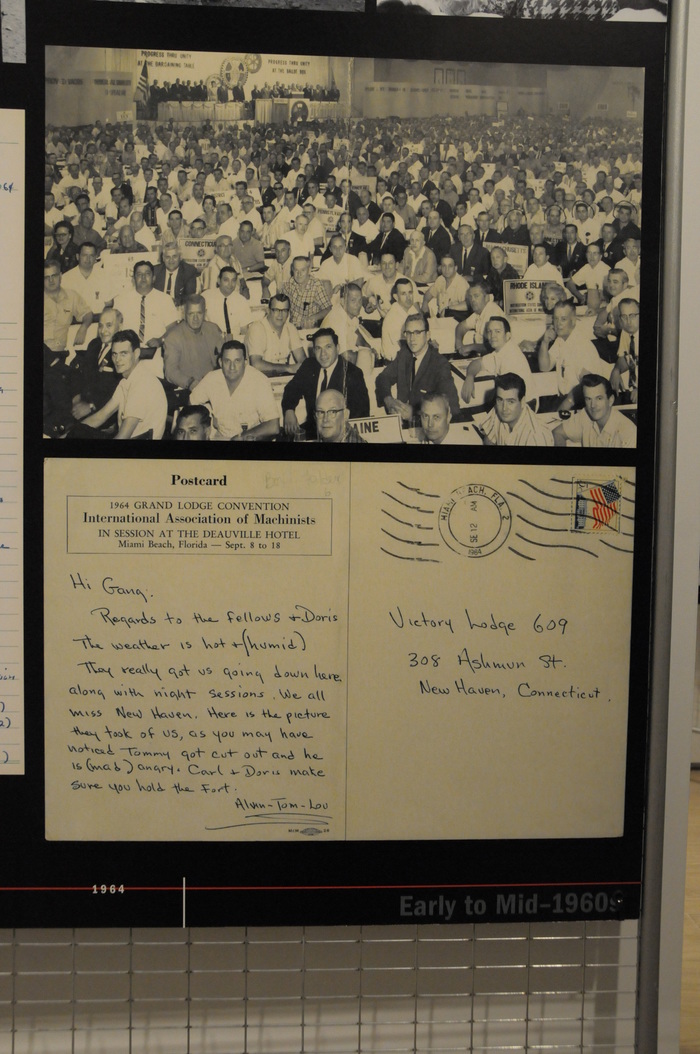 PROGRESS THRU UNITY
AT THE BARGAINING TABLE
PROGRESS THRU UNITY
CONNECTICUT
RHODE ISLAND
AINE
Postcard
1964 GRAND LODGE CONVENTION
International Association of Machinists
IN SESSION AT THE DEAUVILLE HOTEL
Miami Beach, Florida — Sept. 8 to 18
MIAMI BEACH, FLA. 2
AM
SE 12
1964
Hi Gang:
Regards to the fellows + Doris
The weather is hot + (humid)
They really got us going down here,
along with night sessions. We all
miss New Haven. Here is the picture
they took of us, as you may have
noticed Tommy got cut out and he
is (mad) angry. Carl + Doris make
sure you hold the fort.
Alvan-Tom-Lou
Victory Lodge 609
308 Ashmun St.
New Haven, Connecticut.
1964
Early to Mid-1960s